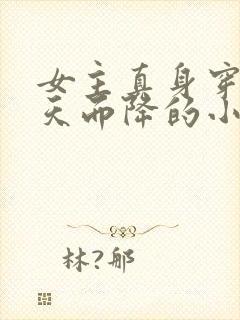 女主真身穿
天而降的小
林?那